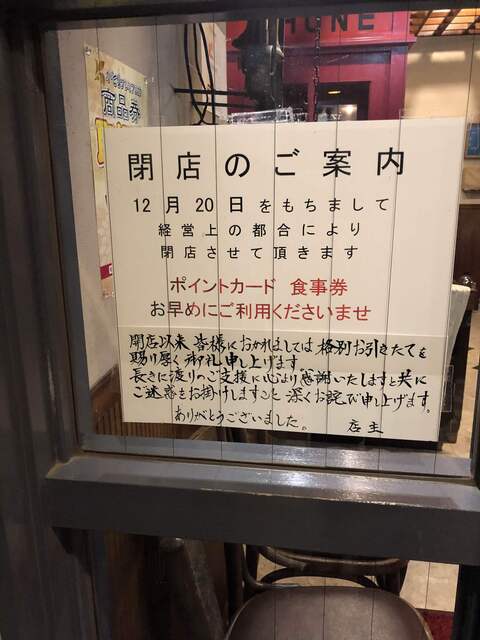 HONE
商品券
閉店のご案内
12月20日をもちまして
経営上の都合により
閉店させて頂きます
ポイントカード 食事券
お早めにご利用くださいませ
開店以来 皆様におかれましては 格別お引きたてを
賜り厚く御礼申し上げます
長きに渡りご支援に心より感謝いたしますと共に
ご迷惑をお掛けしますこと 深くお詫び申し上げます。
ありがとうございました。 店主